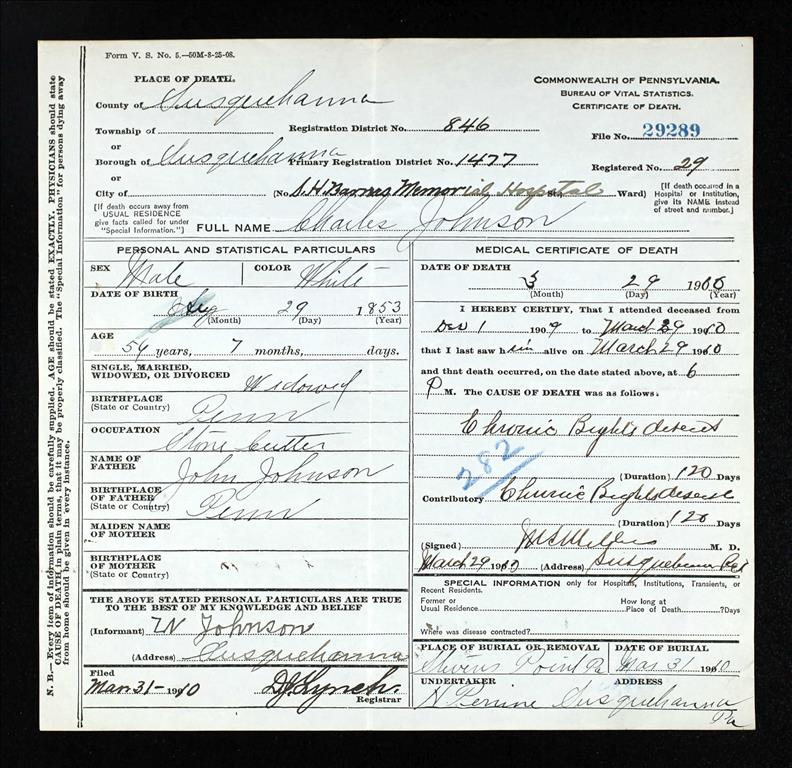 Form V. S. No. 5.—50M-8-25-08.
PLACE OF DEATH,
County of Susquehanna
Township of
or
Borough of Susquehanna
or
City of
[If death occurs away from
USUAL RESIDENCE
give facts called for under
"Special Information."]
COMMONWEALTH OF PENNSYLVANIA.
BUREAU OF VITAL STATISTICS.
CERTIFICATE OF DEATH.
Registration District No. 846
File No. 29289
Primary Registration District No. 1477
Registered No. 29
(No. S. H. Barnes Memorial Hospital St., Ward)
[If death occurred in a
Hospital or Institution,
give its NAME instead
of street and number.]
FULL NAME Charles Johnson
PERSONAL AND STATISTICAL PARTICULARS
SEX Male
COLOR White
DATE OF BIRTH
Aug 29 1853
(Month) (Day) (Year)
AGE
56 years, 7 months, days.
SINGLE, MARRIED,
WIDOWED, OR DIVORCED Widowed
BIRTHPLACE
(State or Country) Penn
OCCUPATION
Stone Cutter
NAME OF
FATHER John Johnson
BIRTHPLACE
OF FATHER
(State or Country) Penn
MAIDEN NAME
OF MOTHER
BIRTHPLACE
OF MOTHER
(State or Country)
THE ABOVE STATED PERSONAL PARTICULARS ARE TRUE
TO THE BEST OF MY KNOWLEDGE AND BELIEF
(Informant) W Johnson
(Address) Susquehanna
Filed
Mar 31-1910 D J Lynch.
Registrar
MEDICAL CERTIFICATE OF DEATH
DATE OF DEATH
3 29 1910
(Month) (Day) (Year)
I HEREBY CERTIFY, That I attended deceased from
Dec 1 1909 to March 29 1910
that I last saw him alive on March 29 1910
and that death occurred, on the date stated above, at 6
P M. The CAUSE OF DEATH was as follows:
Chronic Brights deseas
282
(Duration) 120 Days
Contributory Chronic Brights desease
(Duration) 120 Days
(Signed) Miller M. D.
March 29 1910 (Address) Susquehanna Pa
SPECIAL INFORMATION only for Hospitals, Institutions, Transients, or
Recent Residents.
Former or
Usual Residence
How long at
Place of Death? Days
Where was disease contracted?
PLACE OF BURIAL OR REMOVAL
Stevens Point Pa
DATE OF BURIAL
Mar 31 1910
UNDERTAKER
N Perrine
ADDRESS
Susquehanna
Pa
N. B.—Every item of information should be carefully supplied. AGE should be stated EXACTLY. PHYSICIANS should state
CAUSE OF DEATH in plain terms, that it may be properly classified. The "Special Information" for persons dying away
from home should be given in every instance.